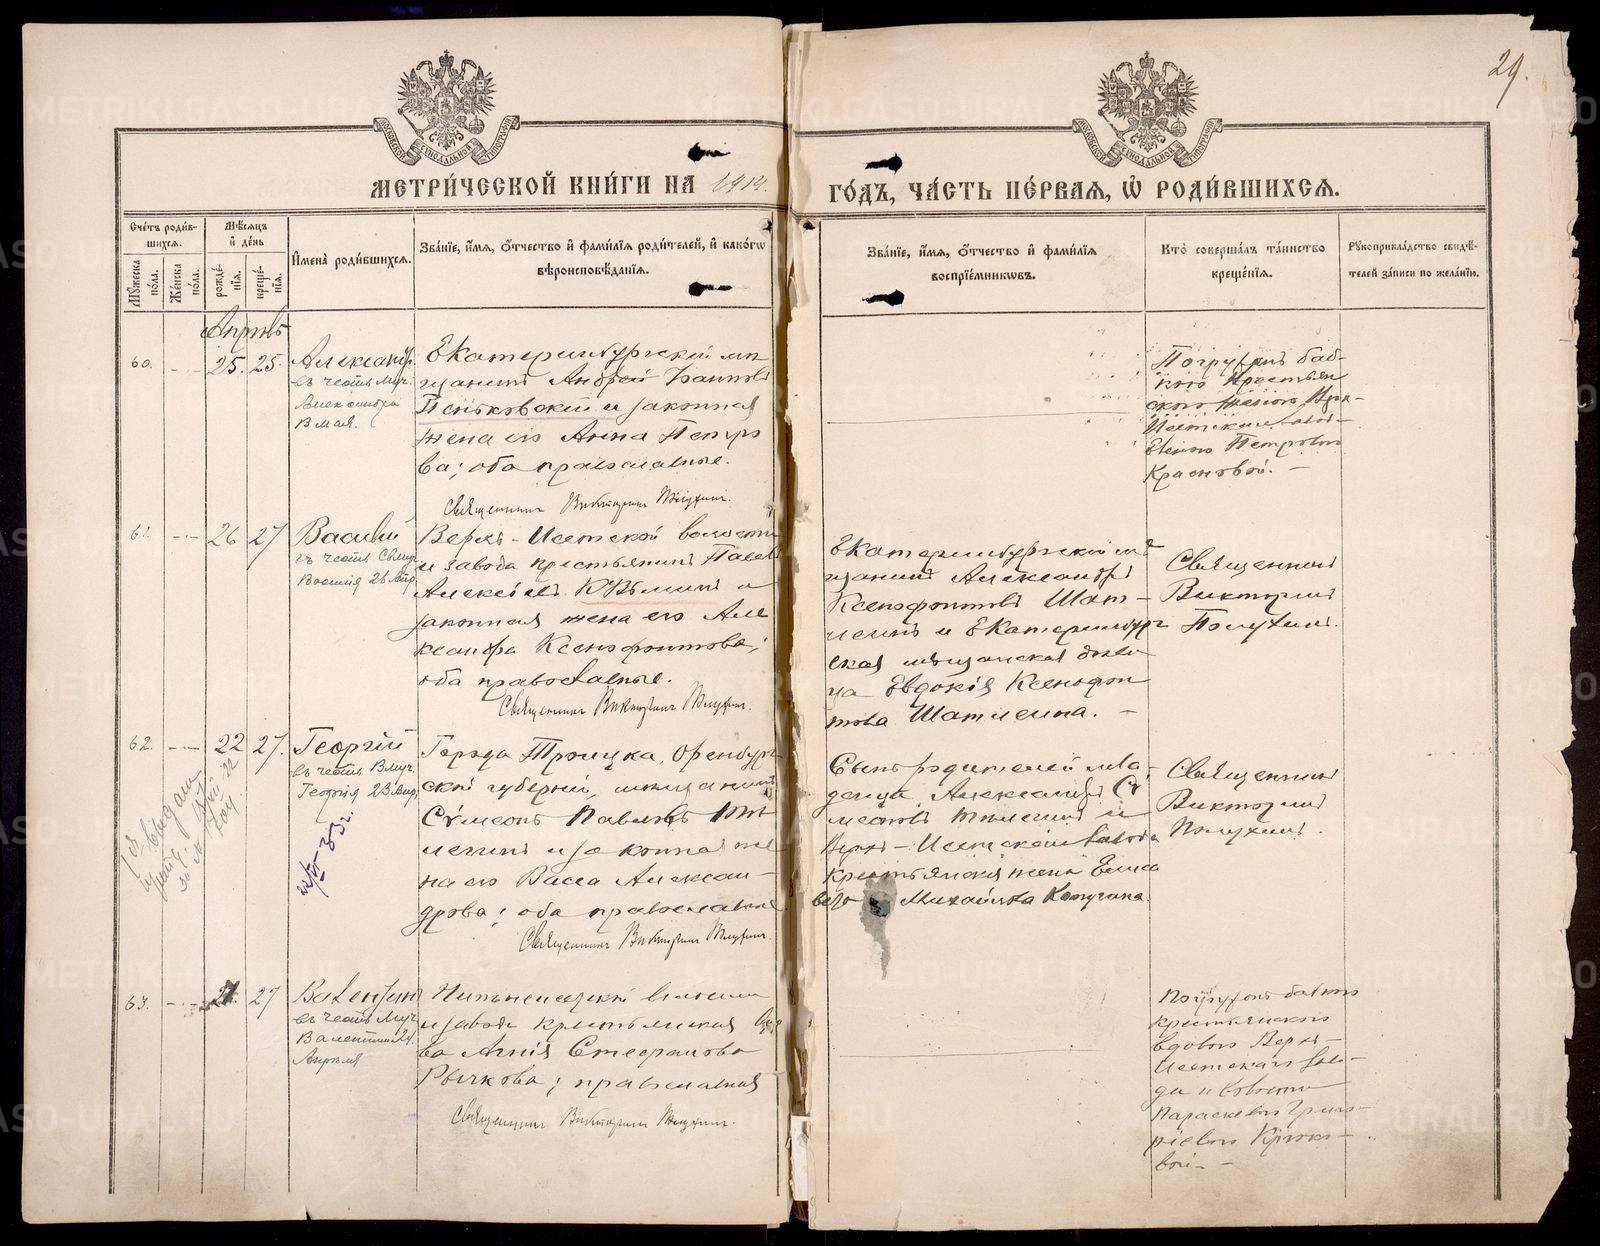 29.
МОСКОВСКОЙ СУНОДАЛЬНОЙ ТИПОГРАФІИ
МОСКОВСКОЙ СУНОДАЛЬНОЙ ТИПОГРАФІИ
МЕТРИ́ЧЕСКОЙ КНИ́ГИ НА 1914.
ГО́ДЪ, ЧА́СТЬ ПЕ́РВАЯ, Ѡ҆ РОДИ́ВШИХСЯ.
Сче́тъ роди́в-
шихся.
Му́жеска по́ла.
Же́нска по́ла.
Мѣ́сяцъ
и҆ де́нь
рожде́-
нїя.
креще́-
нїя.
И҆мена̀ роди́вшихся.
Зва́нїе, и҆́мя, ѻ҆́тчество и҆ фами́лїя роди́телей, и҆ како́гѡ
вѣроисповѣ́данїя.
Зва́нїе, и҆́мя, ѻ҆́тчество и҆ фами́лїя
воспрїе́мниковъ.
Кто̀ соверша́лъ та́инство
креще́нїя.
Рꙋкоприкла́дство свидѣ́-
телей за́писи по жела́нїю.
Апрѣль
60.
25. 25.
Александр
въ честь муч.
Александра
13 мая.
Екатеринбургскій мѣ-
щанинъ Андрей Ивановъ
Пеньковскій и законная
жена его Анна Петро
ва; оба православные.
Священникъ Викторинъ
Погруженъ баб-
кою крестьян
ского женою Верх-
Исетскаго завод-
Еленою Петровою
Красновой. —
61.
26 27
Василій
въ честь Св муч.
Василія 26 Апр.
Верхъ-Исетской волости
и завода крестьянинъ Павелъ
Алексѣевъ Кузьминъ и
законная жена его Але
ксандра Ксенофонтова;
оба православные.
Священникъ Викторинъ
Екатеринбургскій мѣ
щанинъ Александръ
Ксенофонтовъ Шат-
ленъ и Екатеринбург
ская мѣщанская дѣви
ца Евдокія Ксенофон
това Шатленна. —
Священникъ
Викторинъ
62.
22 27.
Георгій
въ честь В муч.
Георгія 23 Апр.
Города Троицка, Оренбург
ской губерніи, мѣщанинъ
Сѵмеонъ Павловъ
и законная же
на его Васса Алексан-
дрова; оба православные
Священникъ Викторинъ
Сынъ родителей мла-
денца, Александръ Сѵ
меоновъ и
Верхъ-Исетскаго завода
крестьянская жена Елиса
вета Михайлова
Священникъ
Викторинъ
63.
27
Валентинъ
въ честь Муч.
Валентина 24
Апрѣля
волости
и завода крестьянская вдо
ва Анна Стефанова
Рычкова; православная
Священникъ Викторинъ
Погруженъ бабкою
крестьянскою
вдовою Верхъ-
Исетскаго заво-
да и волости
Параскевою Григо-
ріевою Крюко-
вой. —